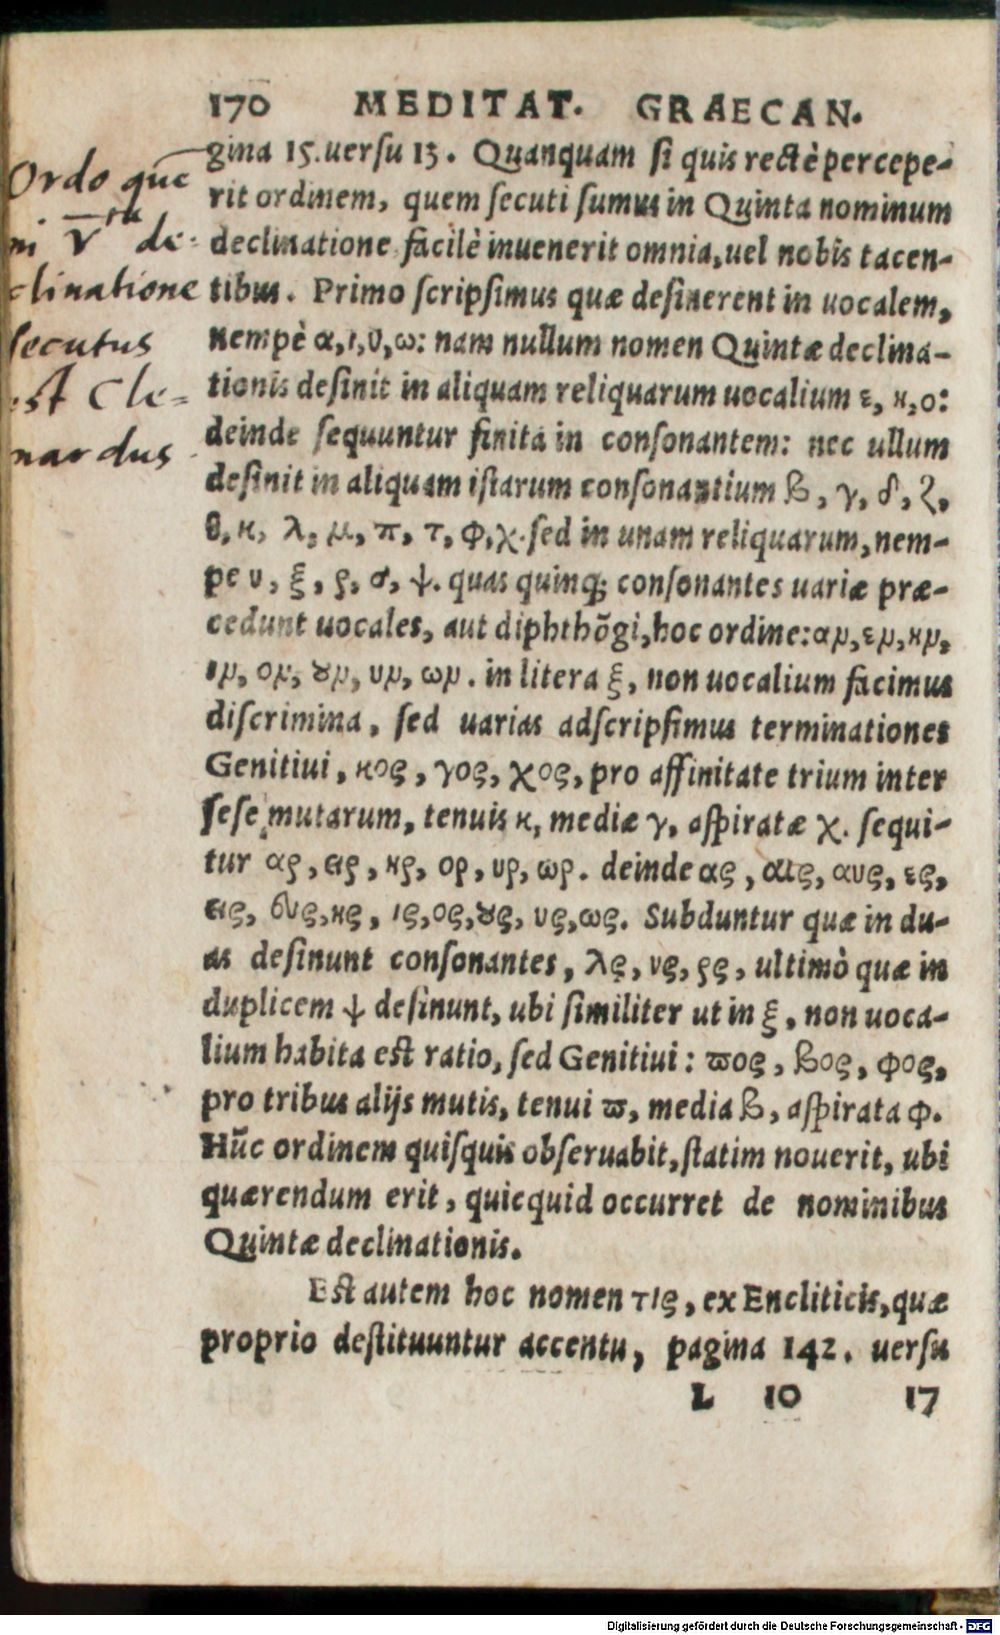 170 MEDITAT. GRAECAN.
gina 15. uersu 13. Quanquam si quis rectè percepe-
rit ordinem, quem secuti sumus in Quinta nominum
declinatione facilè inuenerit omnia, uel nobis tacen-
tibus. Primo scripsimus quæ desinerent in uocalem,
nempè α, ι, υ, ω: nam nullum nomen Quintæ declina-
tionis desinit in aliquam reliquarum uocalium ε, η, ο:
deinde sequuntur finita in consonantem: nec ullum
desinit in aliquam istarum consonantium β, γ, δ, ζ,
θ, κ, λ, μ, π, τ, φ, χ. sed in unam reliquarum, nem-
pe ν, ξ, ρ, σ, ψ. quas quinq; consonantes uariæ præ-
cedunt uocales, aut diphthõgi, hoc ordine: αν, εν, ην,
ιν, ον, ουν, υν, ων. in litera ξ, non uocalium facimus
discrimina, sed uarias adscripsimus terminationes
Genitiui, κος, γος, χος, pro affinitate trium inter
sese mutarum, tenuis κ, mediæ γ, aspiratæ χ. sequi-
tur αρ, ειρ, ηρ, ορ, υρ, ωρ. deinde ας, αις, αυς, ες,
εις, ευς, ης, ις, ος, ους, υς, ως. Subduntur quæ in du-
as desinunt consonantes, λς, νς, ρς, ultimò quæ in
duplicem ψ desinunt, ubi similiter ut in ξ, non uoca-
lium habita est ratio, sed Genitiui: πος, βος, φος,
pro tribus alijs mutis, tenui π, media β, aspirata φ.
Hũc ordinem quisquis obseruabit, statim nouerit, ubi
quærendum erit, quicquid occurret de nominibus
Quintæ declinationis.
Est autem hoc nomen τις, ex Encliticis, quæ
proprio destituuntur accentu, pagina 142. uersu
L 10 17
Ordo quē
ni V ta de-
clinatione
secutus
est Cle=
nardus
Digitalisierung gefördert durch die Deutsche Forschungsgemeinschaft - DFG